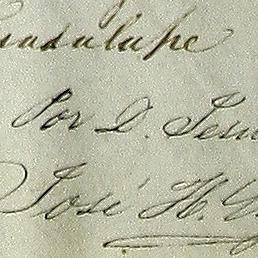 Guadalupe
Por D. Jesu
José H. G